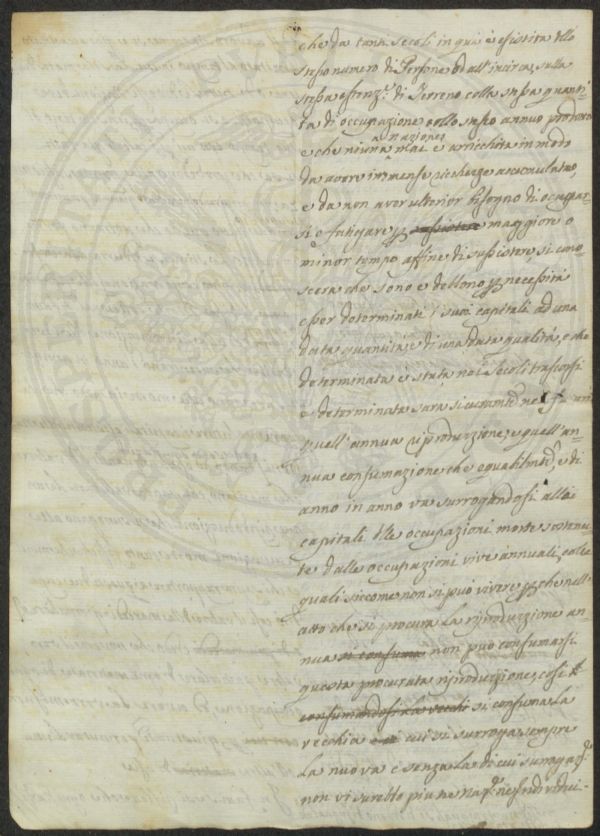 che da tanti secoli in quà è esistita dllo
stesso numero di Persone od all'incirca, sulla
stessa estenz.e di Terreno colla stessa quanti-
tà di occupazione collo stesso annuo prodotto
e che niuna nazione mai è arricchita in modo
da avere immense ricchezze accumulate,
e da non aver ulterior bisogno di occupar-
si e fatigare maggiore o
minor tempo affine di sussistere si cono-
scerà che sono e debbono necessità
esser determinati i suoi capitali ad una
data quantità, e di una data qualità, e che
determinata è stata nei secoli trascorsi
e determinata sarà sicuramte ne
quell'annua riproduzione, e quell'an-
nua consumazione che equabilmte, e di
anno in anno va surrogandosi alli
capitali dlle occupazioni morte sostenu-
te dalle occupazioni vive annuali, colle
quali siccome non si può vivere che nell'
atto che si procura la riproduzione an-
nua si consuma non può consumarsi
questa procurata riproduzione, così
consumandosi la vecchia si consuma la
vecchia cui si surroga sempre
la nuova e senza la di cui surrogaz.e
non vi sarebbe più nè nè individui